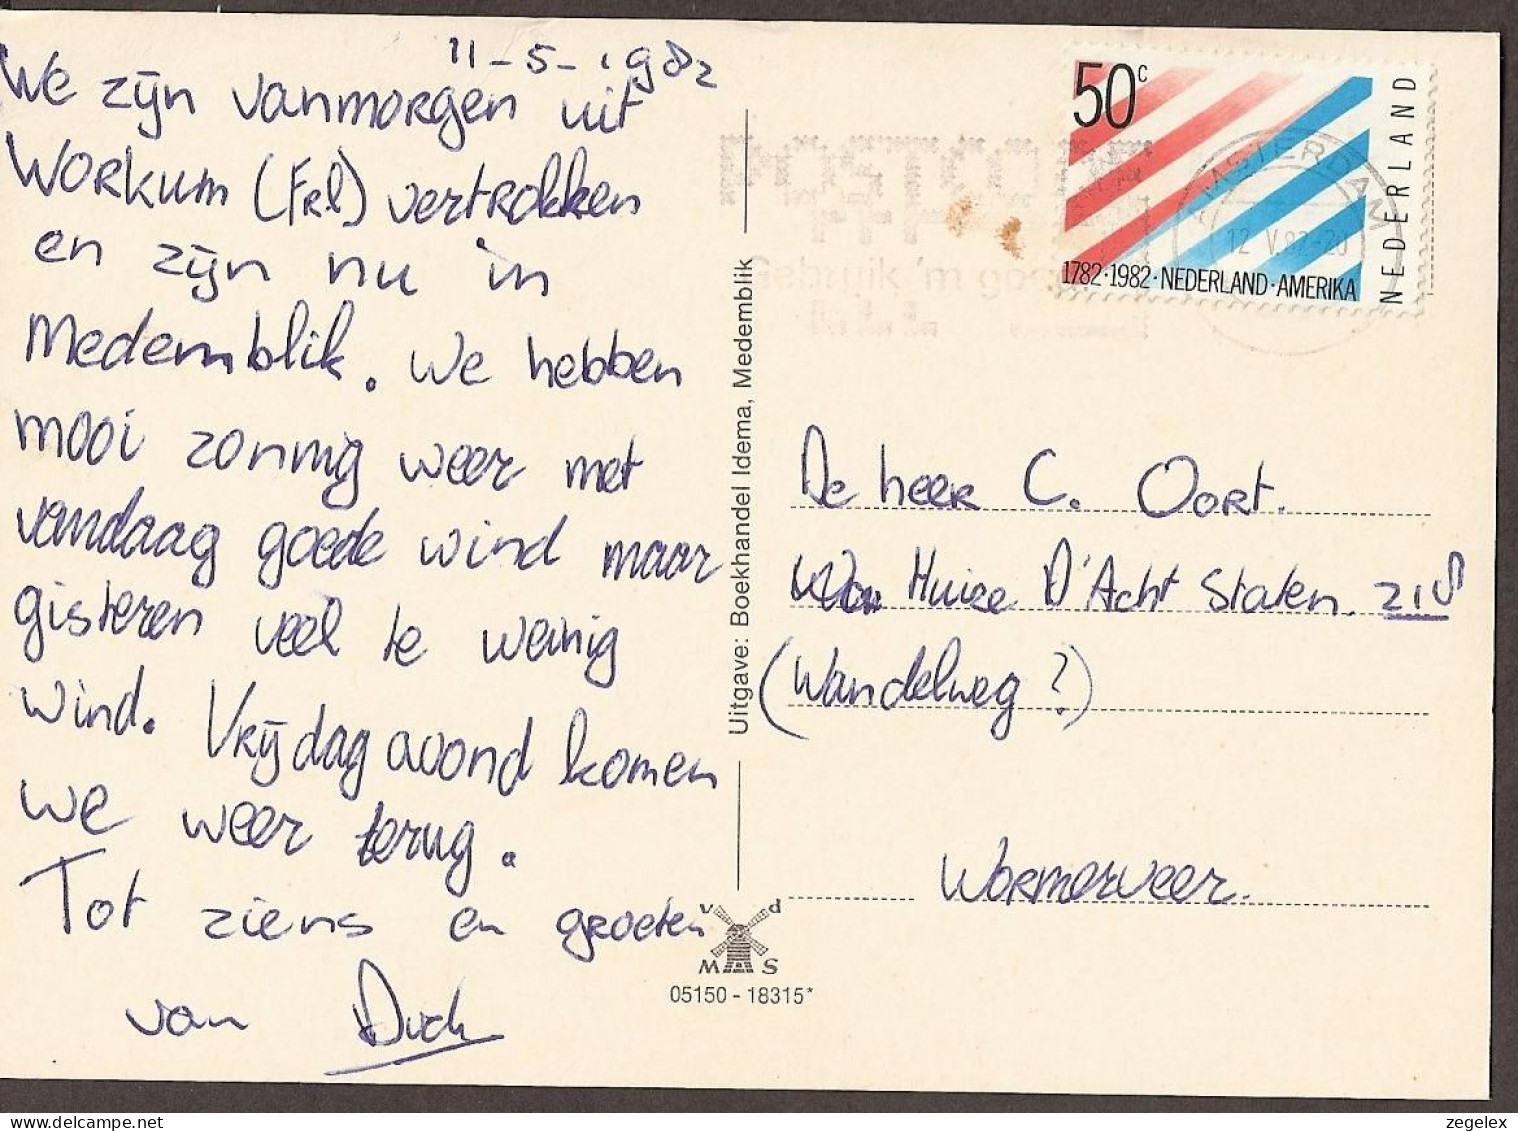 11-5-1982
We zijn vanmorgen uit
Workum (Frl) vertrokken
en zijn nu in
Medemblik. We hebben
mooi zonnig weer met
vandaag goede wind maar
gisteren veel te weinig
wind. Vrijdag avond komen
we weer terug.
Tot ziens en groeten
van Dick
Uitgave: Boekhandel Idema, Medemblik
v d
MAS
05150 - 18315*
50c
NEDERLAND
1782·1982·NEDERLAND·AMERIKA
AMSTERDAM
12.V.82-20
POSTCODE
Gebruik 'm goed
De heer C. Oort.
Huize D'Acht Staten. 218
(Wandelweg?)
Wormerveer.
zegelex